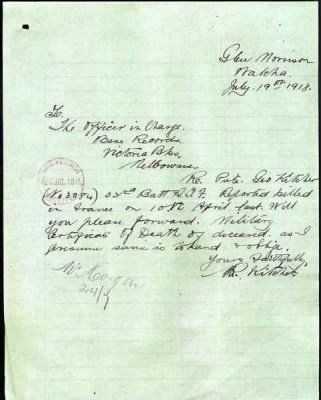 Glen Morrison
Walcha.
July. 19th 1918.
To.
The Officer in Charge.
Base Records
Victoria Bks,
Melbourne.
Re. Pute. Geo Kitcher
(No 3084) 33rd Batt A.I.F. Reported killed
in France on 10th April last. Will
you please forward. Military
Certificate of Death of deceased. as I
presume same is to hand & oblige.
Yours Faithfully
R. Kitcher